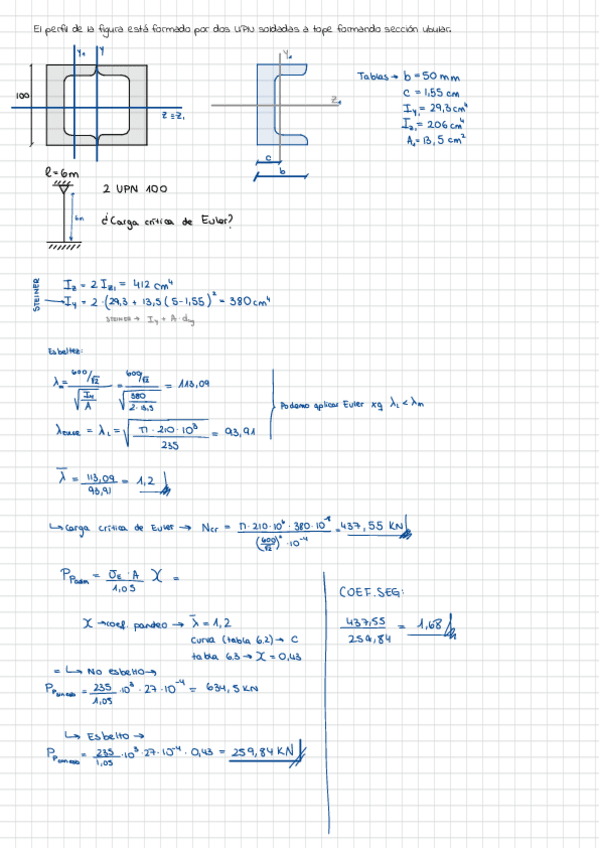 El perfil de la figura está formado por dos UPN soldadas a tope formando sección ubular.
Y₁ Y
100
Z ≡ Z₁
Y₁
Z₁
c
b
Tablas → b = 50 mm
c = 1,55 cm
Iy₁ = 29,3 cm⁴
Iz₁ = 206 cm⁴
A₁ = 13,5 cm²
l = 6m
6m
2 UPN 100
¿Carga crítica de Euler?
STEINER
Iz = 2 Iz₁ = 412 cm⁴
→ Iy = 2·(29,3 + 13,5 (5-1,55)² = 380 cm⁴
STEINER → Iy + A·d
Esbeltez:
λ = 600/√2 / √(Iy/A) = 600/√2 / √(380/2·13,5) = 113,09
λ = λL = √(π·210·10³/235) = 93,91
Podemo aplicar Euler xq λL < λm
λ̄ = 113,09/93,91 = 1,2
↳ Carga crítica de Euler → Ncr = π·210·10⁶·380·10⁻⁸ / (600/√2)²·10⁻⁴ = 437,55 KN
P = σE·A/1,05 χ =
χ → coef. pandeo → λ̄ = 1,2
curva (tabla 6.2) → C
tabla 6.3 → χ = 0,43
= ↳ No esbelto →
P = 235/1,05 ·10³·27·10⁻⁴ = 634,5 KN
↳ Esbelto →
P = 235/1,05 ·10³·27·10⁻⁴·0,43 = 259,84 KN
COEF. SEG:
437,55/259,84 = 1,68